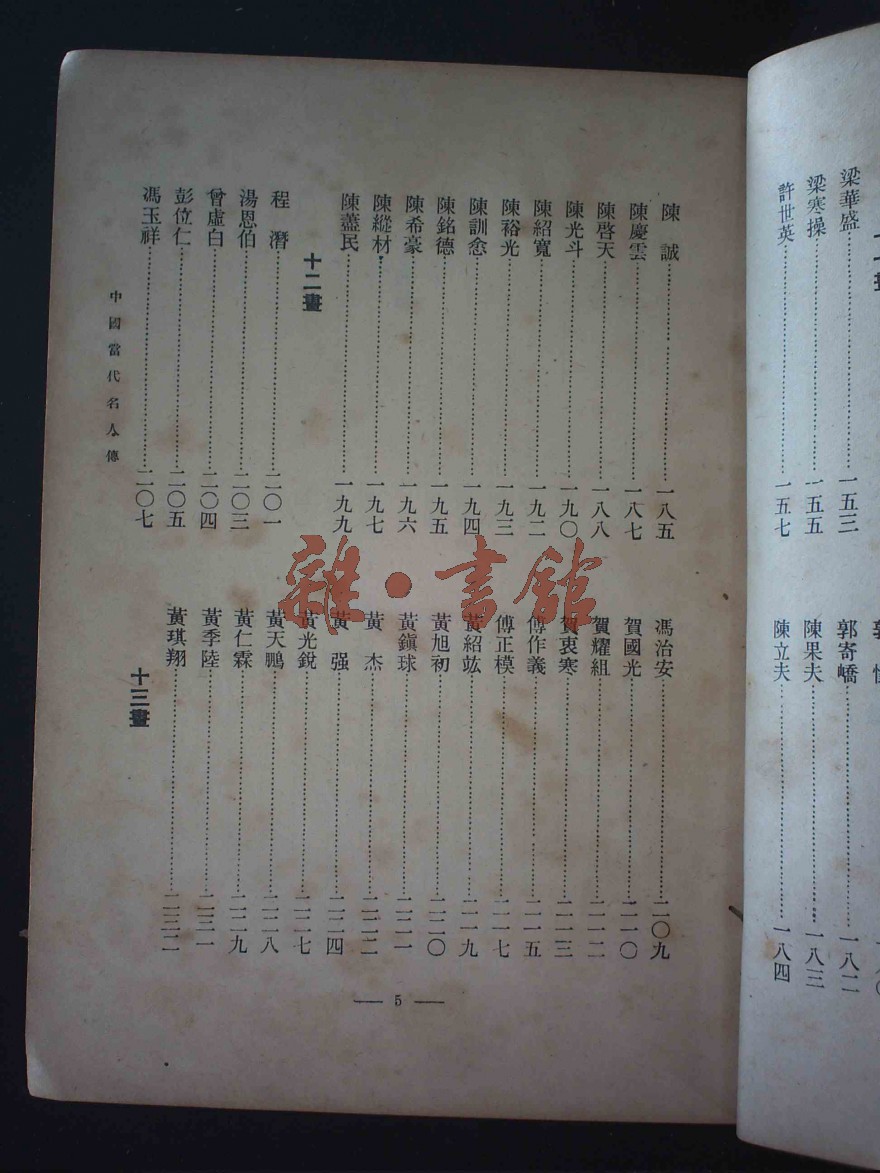 梁華盛……一五三
梁寒操……一五五
許世英……一五七
郭寄嶠……一八二
陳果夫……一八三
陳立夫……一八四
陳　誠……一八五
陳慶雲……一八七
陳啓天……一八八
陳光斗……一九〇
陳紹寬……一九二
陳裕光……一九三
陳訓悆……一九四
陳銘德……一九五
陳希豪……一九六
陳縱材……一九七
陳藎民……一九九
十二畫
程　潛……二〇一
湯恩伯……二〇三
曾虛白……二〇四
彭位仁……二〇五
馮玉祥……二〇七
馮治安……二〇九
賀國光……二一〇
賀耀組……二一二
賀衷寒……二一三
傅作義……二一五
傅正模……二一七
黃紹竑……二一九
黃旭初……二二〇
黃鎭球……二二一
黃　杰……二二二
黃　强……二二四
黃光銳……二二七
黃天鵬……二二八
黃仁霖……二二九
黃季陸……二三一
黃琪翔……二三二
十三畫
中國當代名人傳
— 5 —
雜·書館